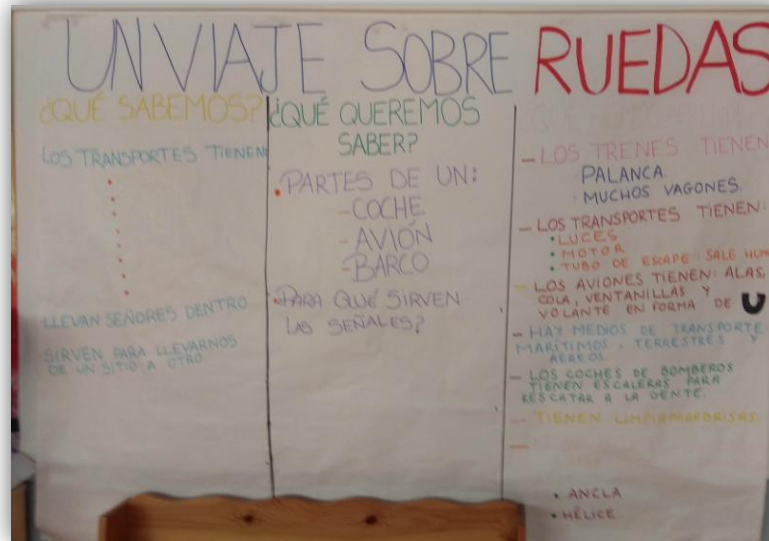 UN VIAJE SOBRE RUEDAS
¿QUÉ SABEMOS?
LOS TRANSPORTES TIENEN:
LLEVAN SEÑORES DENTRO
SIRVEN PARA LLEVARNOS
DE UN SITIO A OTRO
¿QUÉ QUEREMOS
SABER?
• PARTES DE UN:
- COCHE
- AVIÓN
- BARCO
• PARA QUÉ SIRVEN
LAS SEÑALES?
- LOS TRENES TIENEN
· PALANCA
· MUCHOS VAGONES.
- LOS TRANSPORTES TIENEN:
• LUCES
• MOTOR
• TUBO DE ESCAPE: SALE HUM
- LOS AVIONES TIENEN: ALAS,
COLA, VENTANILLAS Y
VOLANTE EN FORMA DE U
- HAY MEDIOS DE TRANSPORTE
MARÍTIMOS, TERRESTRES Y
AÉREOS
- LOS COCHES DE BOMBEROS
TIENEN ESCALERAS PARA
RESCATAR A LA GENTE.
- TIENEN
• ANCLA
• HÉLICE